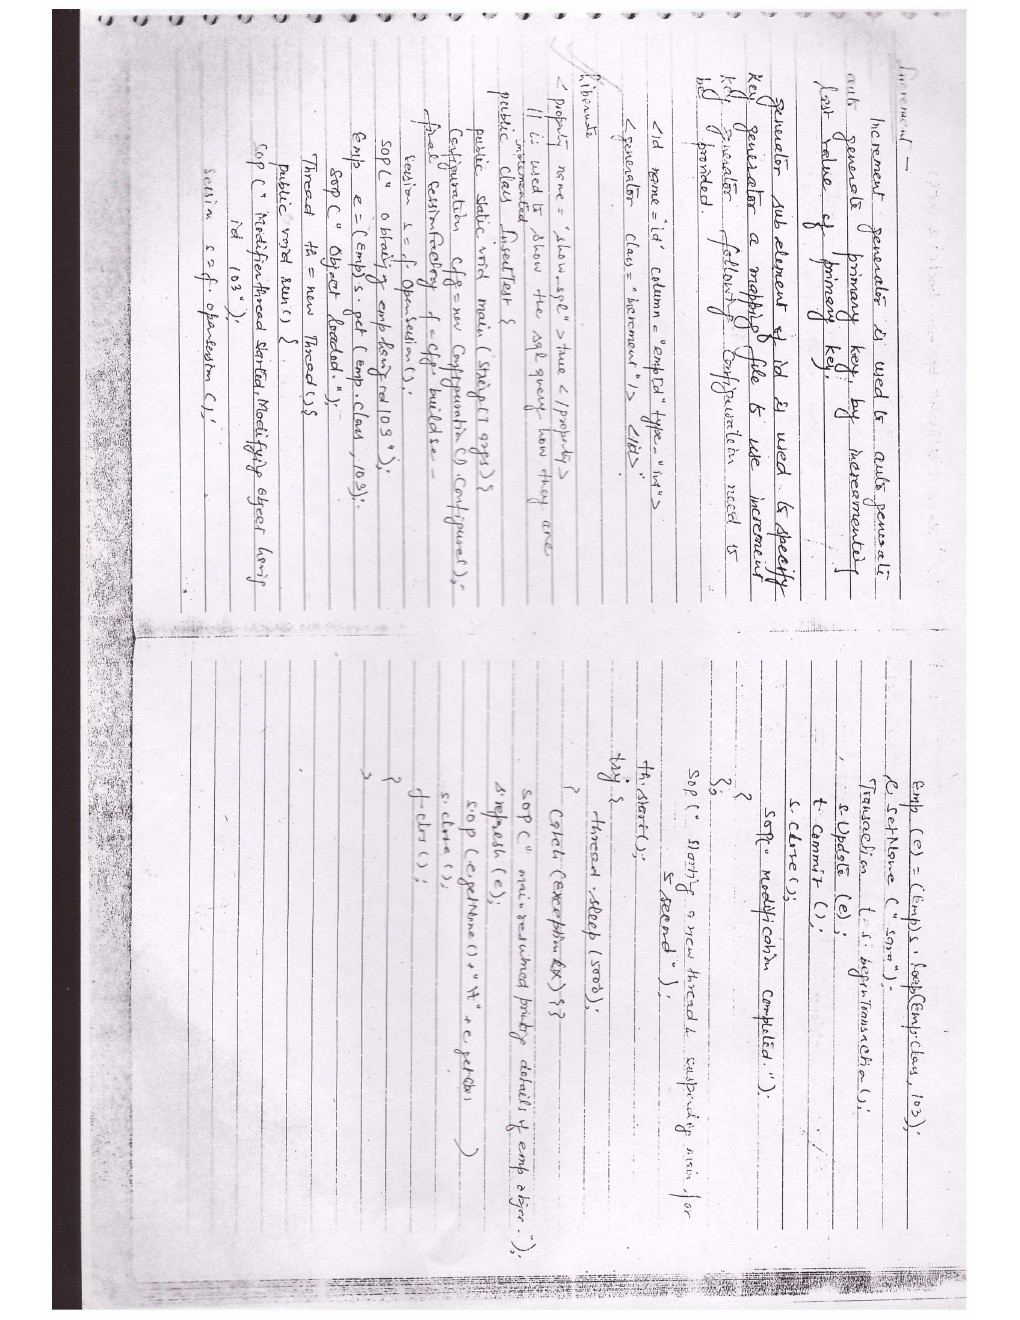 Increment —
Increment generator is used to auto generate
auto generate primary key, by increamenting
last value of primary key.
generator sub element of id is used to specify
key generator a mapping file to use increment
key generator following configuration need to
be provided.
<id name="id" column="empId" type="int">
<generator class="increment"/> </id>
hibernate
<property name="show_sql">true</property>
// is used to show the sql query how they are
implemented
public class InsertTest {
public static void main (String[] args) {
Configuration cfg = new Configuration().Configure();
final SessionFactory f = cfg. buildse —
Session s = f. OpenSession();
SOP(" obtaing emp having id 103 ");
Emp e = (Emp) s. get (emp.class, 103);
SOP (" Object loaded. ");
Thread th = new Thread() {
public void run() {
SOP (" Modifier thread started, Modifying object having
id 103 ");
Session s = f. opensession ();
Emp (e) = (Emp) s. (Emp.class, 103);
e setName (" sara");
Transaction t = s. beginTransaction();
s. Update (e);
t commit ();
s. close();
SOP(" Modification Completed. ");
}
};
SOP (" starting a new thread & suspending main for
5 second" );
th.start();
try {
thread .sleep (5000);
}
Catch (Exception ex) { }
SOP (" main resumed printing details of emp objec ..");
s.refresh (e);
s.o.p (e.getName()+"\t"+e.get )
s. close ();
f.clos();
}
}